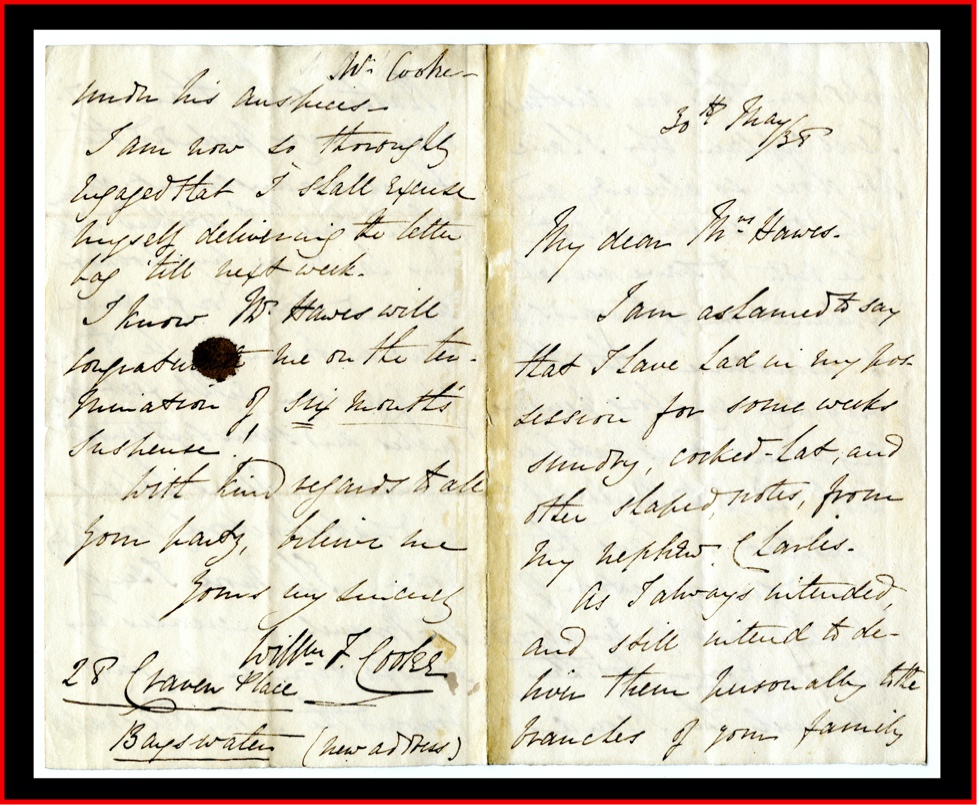 30th May/38
My dear Mrs Hawes.
I am ashamed to say
that I have had in my pos-
session for some weeks
sundry, cocked-hat, and
other shaped, notes, from
my nephew Charles.
As I always intended,
and still intend to de-
liver them personally to the
branches of your family
Mr Cooke
under his auspices
I am now so thoroughly
engaged that I shall excuse
myself delivering the letter
bag 'till next week.
I know Mr Hawes will
congratulate me on the ter-
mination of six months'
suspense!
With kind regards to all
your party, believe me
Yours very sincerely
Willm F. Cooke
28 Craven Place
Bayswater (new address)